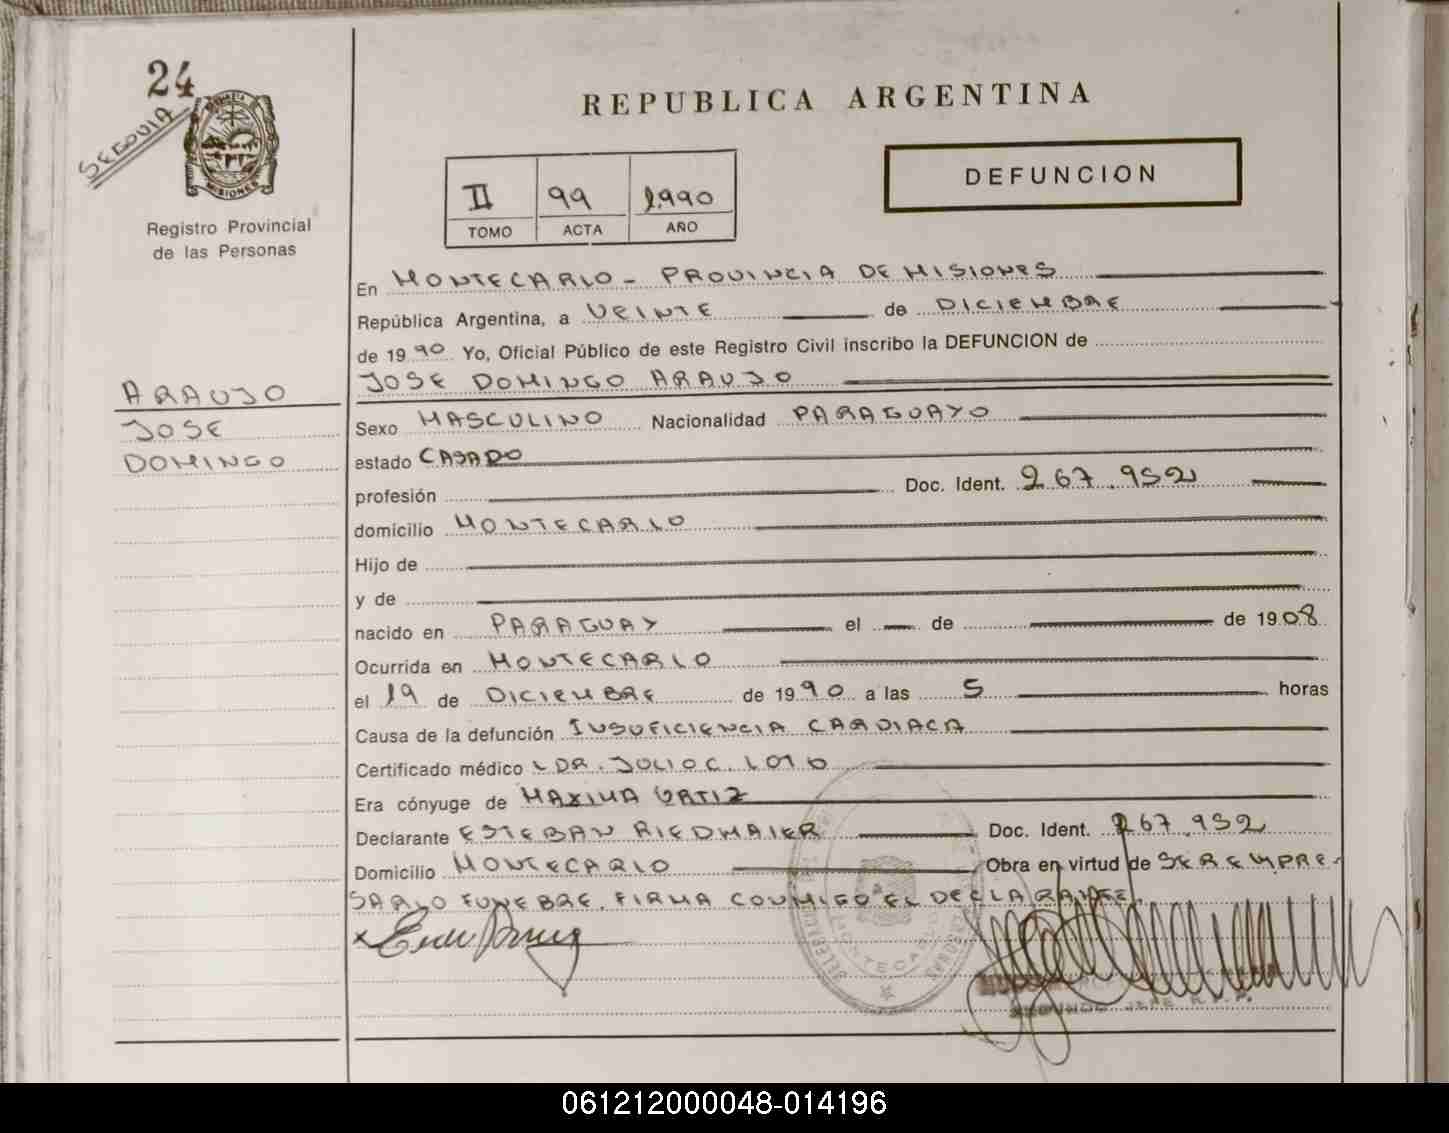 24
SEGOVIA
MISIONES
Registro Provincial
de las Personas
REPUBLICA ARGENTINA
DEFUNCION
II 99 1.990
TOMO ACTA AÑO
En MONTECARLO - PROVINCIA DE MISIONES
República Argentina, a VEINTE de DICIEMBRE
de 1990 Yo, Oficial Público de este Registro Civil inscribo la DEFUNCION de
JOSE DOMINGO ARAUJO
ARAUJO
JOSE
DOMINGO
Sexo MASCULINO Nacionalidad PARAGUAYO
estado CASADO
profesión Doc. Ident. 267.952
domicilio MONTECARLO
Hijo de
y de
nacido en PARAGUAY el de de 1908
Ocurrida en MONTECARLO
el 19 de DICIEMBRE de 1990 a las 5 horas
Causa de la defunción INSUFICIENCIA CARDIACA
Certificado médico DR. JULIO C.
Era cónyuge de MAXIMA ORTIZ
Declarante ESTEBAN RIEDMAIER Doc. Ident. 267.952
Domicilio MONTECARLO Obra en virtud de SER EMPRE-
SARIO FUNEBRE. FIRMA CONMIGO EL DECLARANTE.
MONTECARLO
SEGUNDO JEFE R.P.P.
061212000048-014196